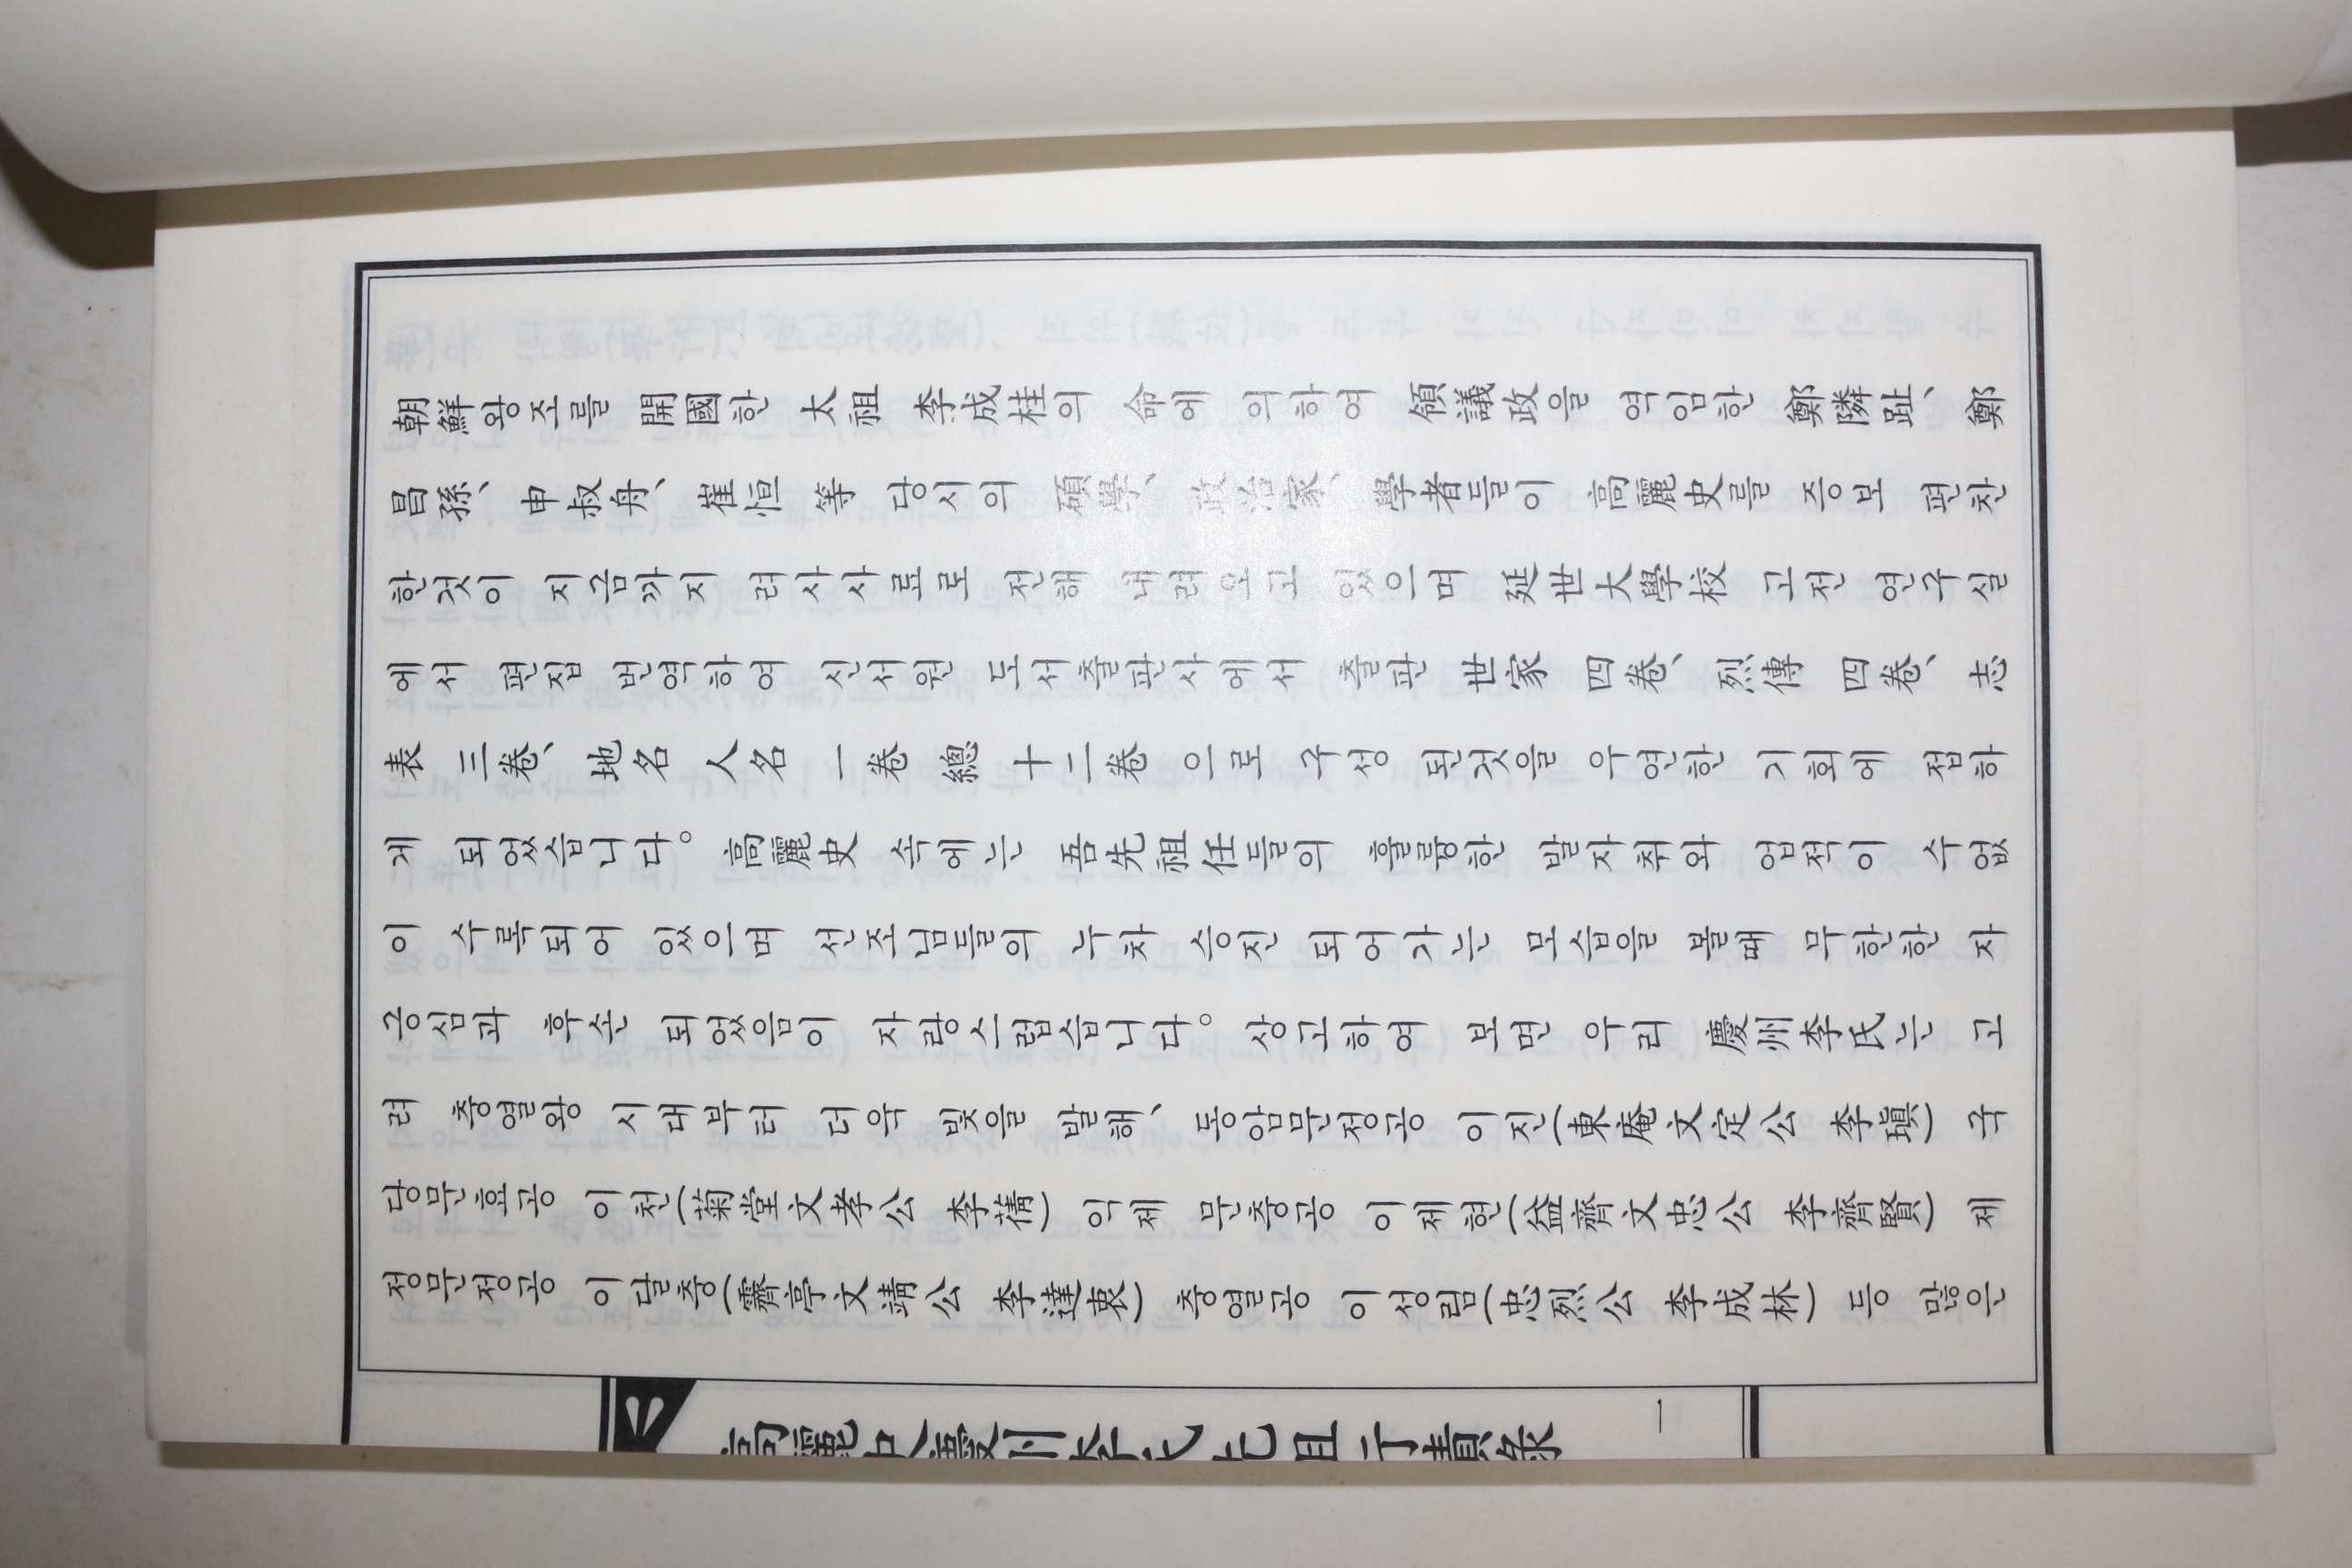 朝鮮왕조를 開國한 太祖 李成桂의 命에 의하여 領議政을 역임한 鄭隣趾、鄭
昌孫、申叔舟、崔恒 等 당시의 碩學、政治家、學者들이 高麗史를 증보 편찬
한것이 지금까지 려사사료로 전해 내려오고 있으며 延世大學校 고전 연구실
에서 편집 번역하여 신서원 도서출판사에서 출판 世家 四卷、烈傳 四卷、志
表 三卷、地名 人名 一卷 總 十二卷 으로 구성 된것을 우연한 기회에 접하
게 되었습니다。高麗史 속에는 吾先祖任들의 훌륭한 발자취와 업적이 수없
이 수록되어 있으며 선조님들의 누차 승진 되어가는 모습을 볼때 무한한 자
긍심과 후손 되었음이 자랑스럽습니다。상고하여 보면 우리 慶州李氏는 고
려 충열왕 시대부터 더욱 빛을 발해、동암문정공 이진(東庵文定公 李瑱) 국
당문효공 이천(菊堂文孝公 李蒨) 익제 문충공 이제현(益齊文忠公 李齊賢) 제
정문정공 이달충(霽亭文靖公 李達衷) 충열공 이성림(忠烈公 李成林) 등 많은
高麗史慶州李氏先祖行蹟錄
一